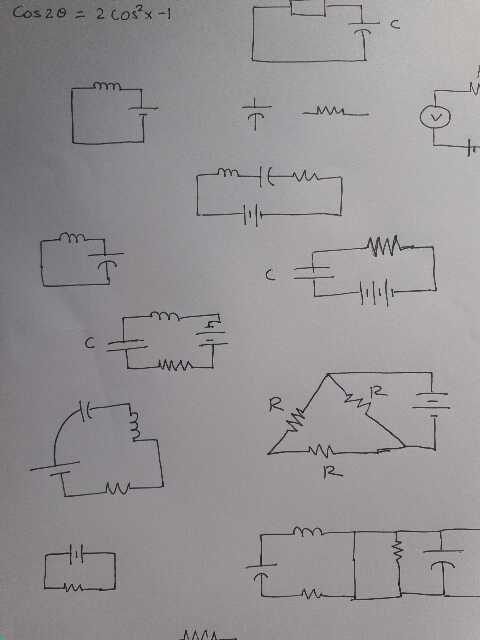 Cos2θ = 2Cos²x-1
C
V
C
C
R
R
R